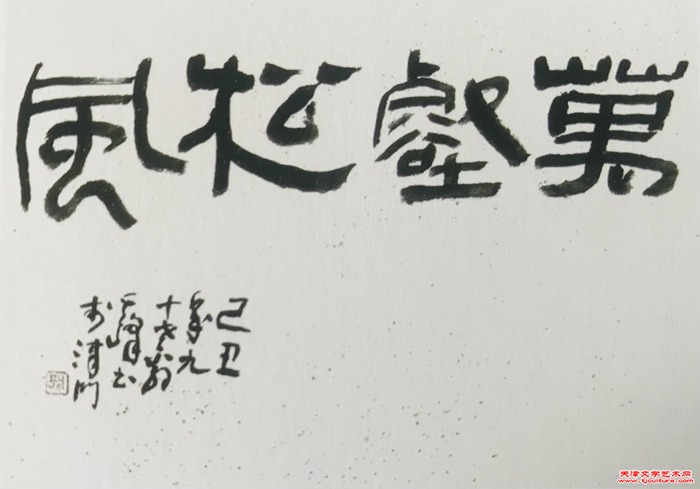 萬壑松風
己丑
年九
十老翁
峰书
于津门
天津文学艺术网
www.tjculture.com